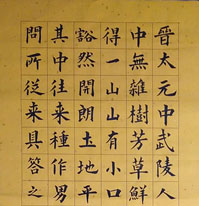 晉太元中武陵人
中無雜樹芳草鮮
得一山山有小口
豁然開朗土地平
其中往来種作男
問所從来具答之